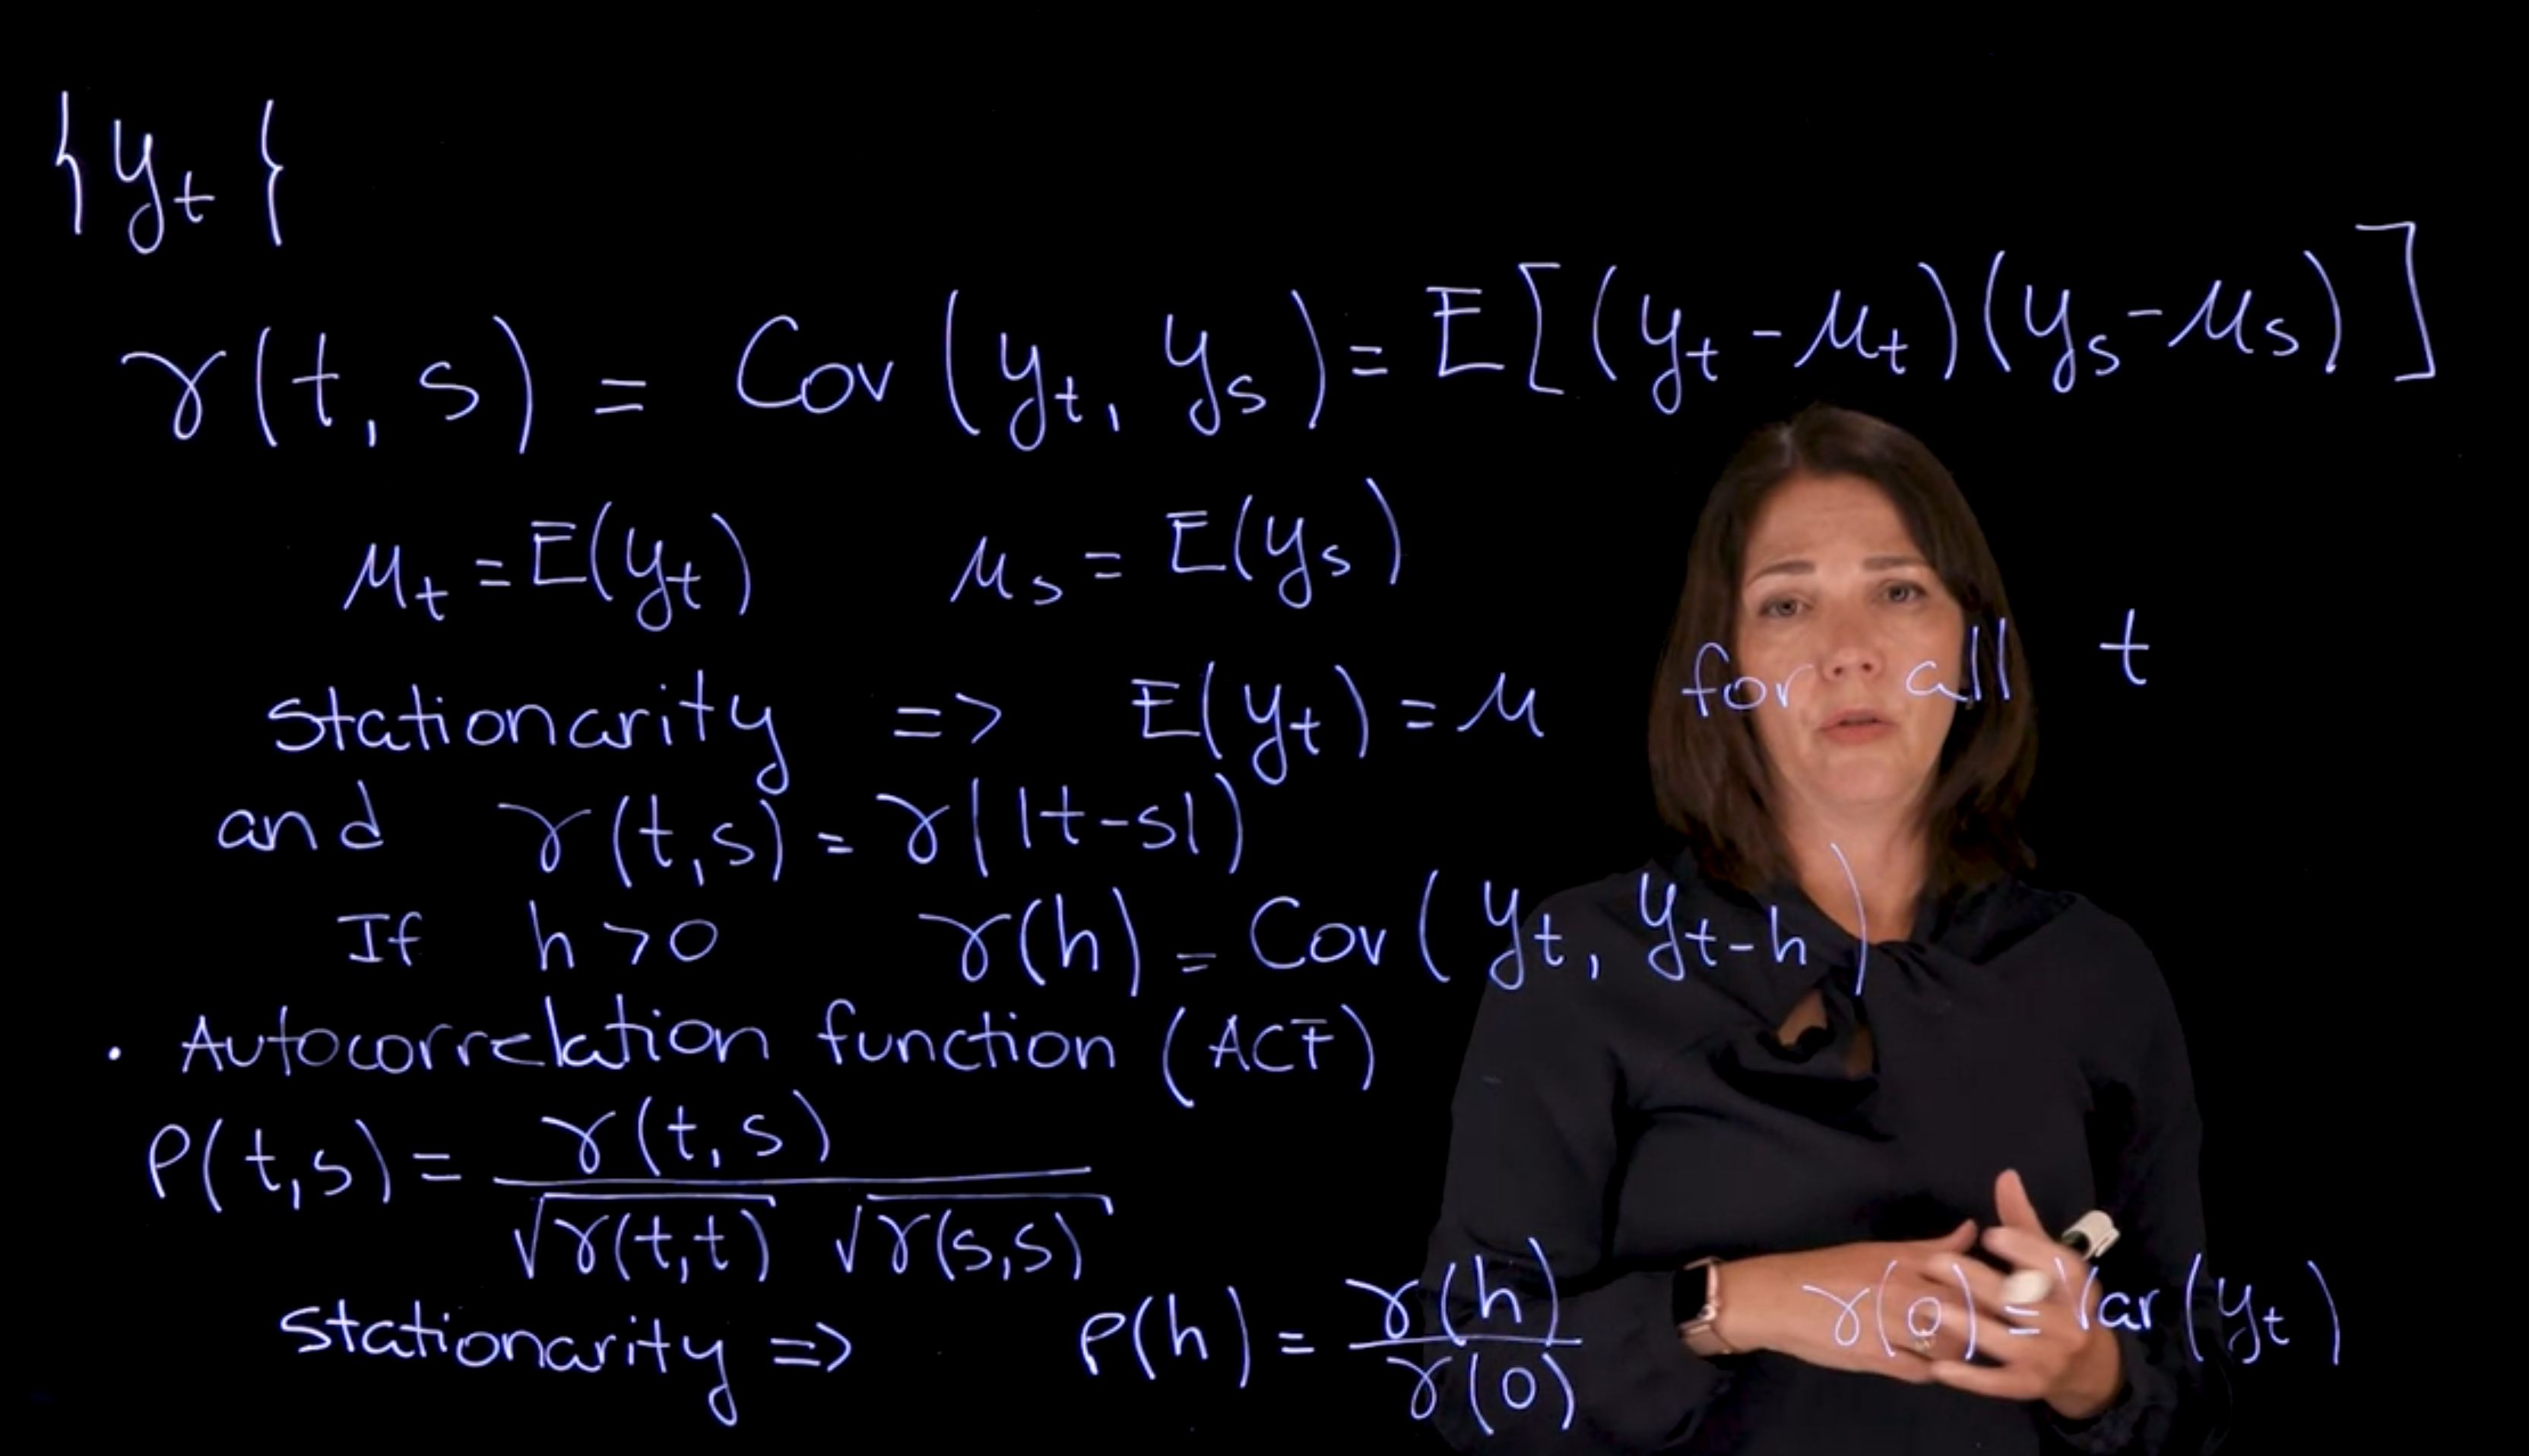 {y_t}
γ(t, s) = Cov(y_t, y_s) = E[(y_t - μ_t)(y_s - μ_s)]
μ_t = E(y_t) μ_s = E(y_s)
stationarity => E(y_t) = μ for all t
and γ(t,s) = γ(|t-s|)
If h>0 γ(h) = Cov(y_t, y_t-h)
• Autocorrelation function (ACF)
ρ(t,s) = γ(t,s) / √γ(t,t) √γ(s,s)
stationarity => ρ(h) = γ(h) / γ(0) γ(0) = Var(y_t)